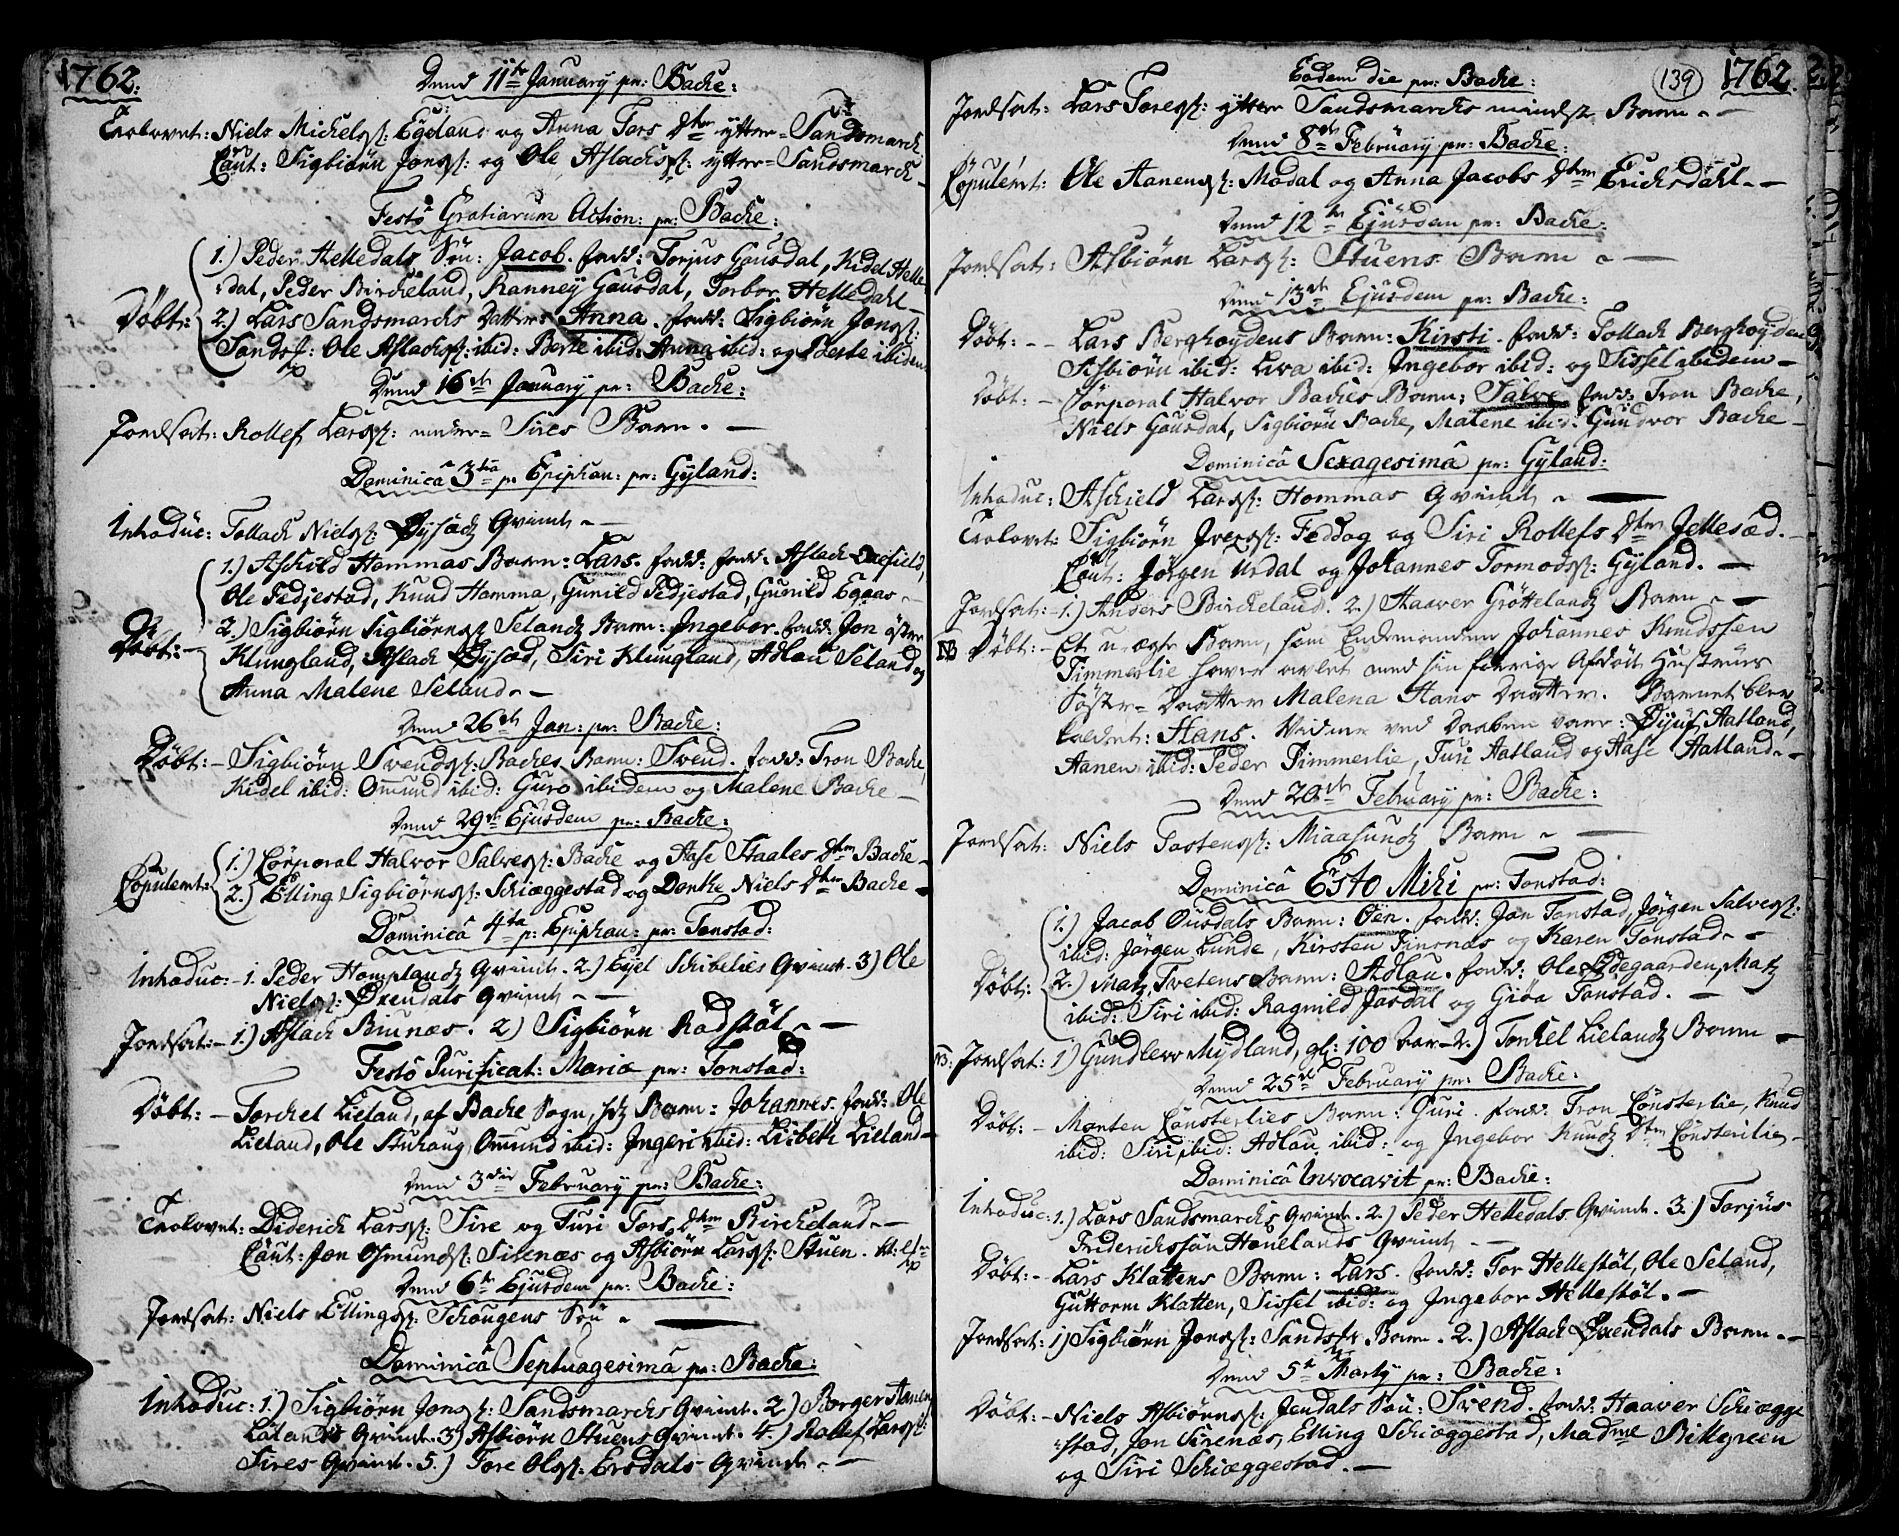 1762.
Dend 11te January pr: Backe:
Trolovet: Niels Michelss: Egeland og Anna Tors Dtter ytter=Sandsmarck
Caut: Sigbiörn Jonss: og Ole Aslachss: ytter=Sandsmarck
Festo Gratiarum Action: pr: Backe:
1.) Peder Helledals Sön: Jacob. fadd: Torjus Gausdal, Kidel Helle-
dal, Peder Birckeland, Ranney Gausdal, Torbor Helledahl
Döbt: 2.) Lars Sandsmarcks Datter: Anna. fadd: Sigbiörn Jonss:
Sandsm: Ole Aslachss: ibid: Berte ibid: Anna ibid: og Berte ibidem
Dend 16de January pr: Backe:
Jordsat: Rollef Larss: under= Sires Barn. —
Dominicâ 3tia p: Epiphan: pr: Gyland:
Introduc: Tollack Nielss: Öysæds Qvinde —
1.) Aschild Hommas Barn: Lars. fadd: fadd: Aslack
Ole Fedjestad, Knud Homma, Gunild Fedjestad, Gunild Egaas
2.) Sigbiörn Sigbiörnss: Selands Barn: Ingebor. fadd: Jon öster
Döbt: Klungland, Aslack Öysæd, Siri Klungland, Adlau Seland og
Anna Malene Seland. —
Dend 26de Jan: pr: Backe:
Döbt: — Sigbiörn Svendss: Backes Barn: Svend. fadd: Tron Backe,
Kidel ibid: Omund ibid: Guro ibidem og Malene Backe —
Dend 29de Ejusdem pr: Backe:
1.) Corporal Halvor Salvess: Backe og Aase Staales Dtter Backe —
Copuleret: 2.) Elling Sigbiörnss: Schiæggestad og Dorthe Niels Dtter Backe —
Dominicâ 4ta p: Epiphan: pr: Tonstad:
Introduc: — 1. Peder Homplands Qvinde. 2.) Eyel Schibelies Qvinde. 3) Ole
Nielss: Öxendals Qvinde —
Jordsat: — 1.) Aslack Biunæs. 2) Sigbiörn Rodstöl —
Festo Purificat: Mariæ pr: Tonstad:
Döbt: — Torckel Lieland, af Backe Sogn, hds Barn: Johannes. fadd: Ole
Lieland, Ole Stuhaug, Omund ibid: Ingeri ibid: Lisbeth Lieland —
Dend 3die February pr: Backe:
Trolovet: Diderich Larss: Sire og Turi Tors Dtter Birckeland. —
Caut: Jon Osmundss: Sirenæs og Asbiörn Larss: Stuen.
Dend 6te Ejusdem pr: Backe:
Jordsat: Niels Ellingss: Schougens Sön —
Dominicâ Septuagesimâ pr: Backe:
Introduc: 1.) Sigbiörn Jonss: Sandsmarcks Qvinde. 2) Borger Aanen
Lölands Qvinde. 3) Asbiörn Stuens Qvinde. 4.) Rollef Larss:
Sires Qvinde. 5.) Tore Olss: Ersdals Qvinde —
139
1762.
Eodem die pr: Backe:
Jordsat: Lars Toress: ytter Sandsmarcks mindste Barn —
Dend 8de February pr: Backe:
Copuleret: Ole Aanenss: Modal og Anna Jacobs Dtter Ericksdahl —
Dend 12te Ejusdem pr: Backe:
Jordsat: Asbiörn Larss: Stuens Barn —
Dend 13de Ejusdem pr: Backe:
Döbt: — Lars Berghöydens Barn: Kirsti. fadd: Tollack Berghöyden
Asbiörn ibid: Liva ibid: Ingebor ibid: og Sissel ibidem —
Döbt: — Corporal Halvor Backes Barn: Salve fadd: Tron Backe,
Niels Gausdal, Sigbiörn Backe, Malene ibid: Gundvor Backe —
Dominicâ Sexagesimâ pr: Gyland:
Introduc: Aschield Larss: Hommas Qvinde —
Trolovet: Sigbiörn Iverss: Feddog og Siri Rollefs Dtter Jellesæd. —
Caut: Jörgen Urdal og Johannes Tormodss: Gyland. —
Jordsat: — 1.) Anders Birckeland. 2.) Haaver Gröttelands Barn —
NB Döbt: — Et u-ægte Barn, som Enkemanden Johannes Knudssen
Timmerlie haver avlet med sin forrige Afdöde Hustrues
Söster-Daatter Malena Hans Daatter. Barnet blev
kaldet: Hans. Vidner ved Daaben vare: Öyuf Aatland,
Aanen ibid: Peder Timmerlie, Turi Aatland og Aase Aatland. —
Dend 20de February pr: Backe:
Jordsat: Niels Tostenss: Miaasunds Barn —
Dominicâ Esto Mihi pr: Tonstad:
1.) Jacob Ousdals Barn: Öen. fadd: Jon Tonstad, Jörgen Salvess:
ibid: Jörgen Lunde, Kirsten Finsnæs og Karen Tonstad —
Döbt: 2.) Matz Tvetens Barn: Adlau. fadd: Ole Ödegaarden, Matz
ibid: Siri ibid: Ragnild Josdal og Giöa Tonstad. —
NB: Jordsat: 1) Gundlev Mydland, gl: 100 Aar — 2.) Torckel Lielands Barn —
Dend 25de February pr: Backe:
Döbt: — Morten Cönsterlies Barn: Guri. fadd: Tron Cönsterlie, Knud
ibid: Siri ibid: Adlau ibid: og Ingebor Knuds Dtter Cönsterlie —
Dominicâ Invocavit pr: Backe:
Introduc: 1.) Lars Sandsmarcks Qvinde. 2.) Peder Helledals Qvinde. 3.) Torjus
Friderichssön Hanelands Qvinde —
Döbt: — Lars Klattens Barn: Lars. fadd: Tor Hellestöl, Ole Seland,
Guttorm Klatten, Sissel ibid: og Ingebor Hellestöl. —
Jordsat: 1) Sigbiörn Jonss: Sandsm: Barn. 2.) Aslack Öxendals Barn. —
Dend 5te Marty pr: Backe:
Döbt: — Niels Asbiörnss: Jendals Sön: Svend. fadd: Haaver Schiægge
stad, Jon Sirenæs, Elling Schiæggestad, Madme Billegreen
og Siri Schiæggestad. —